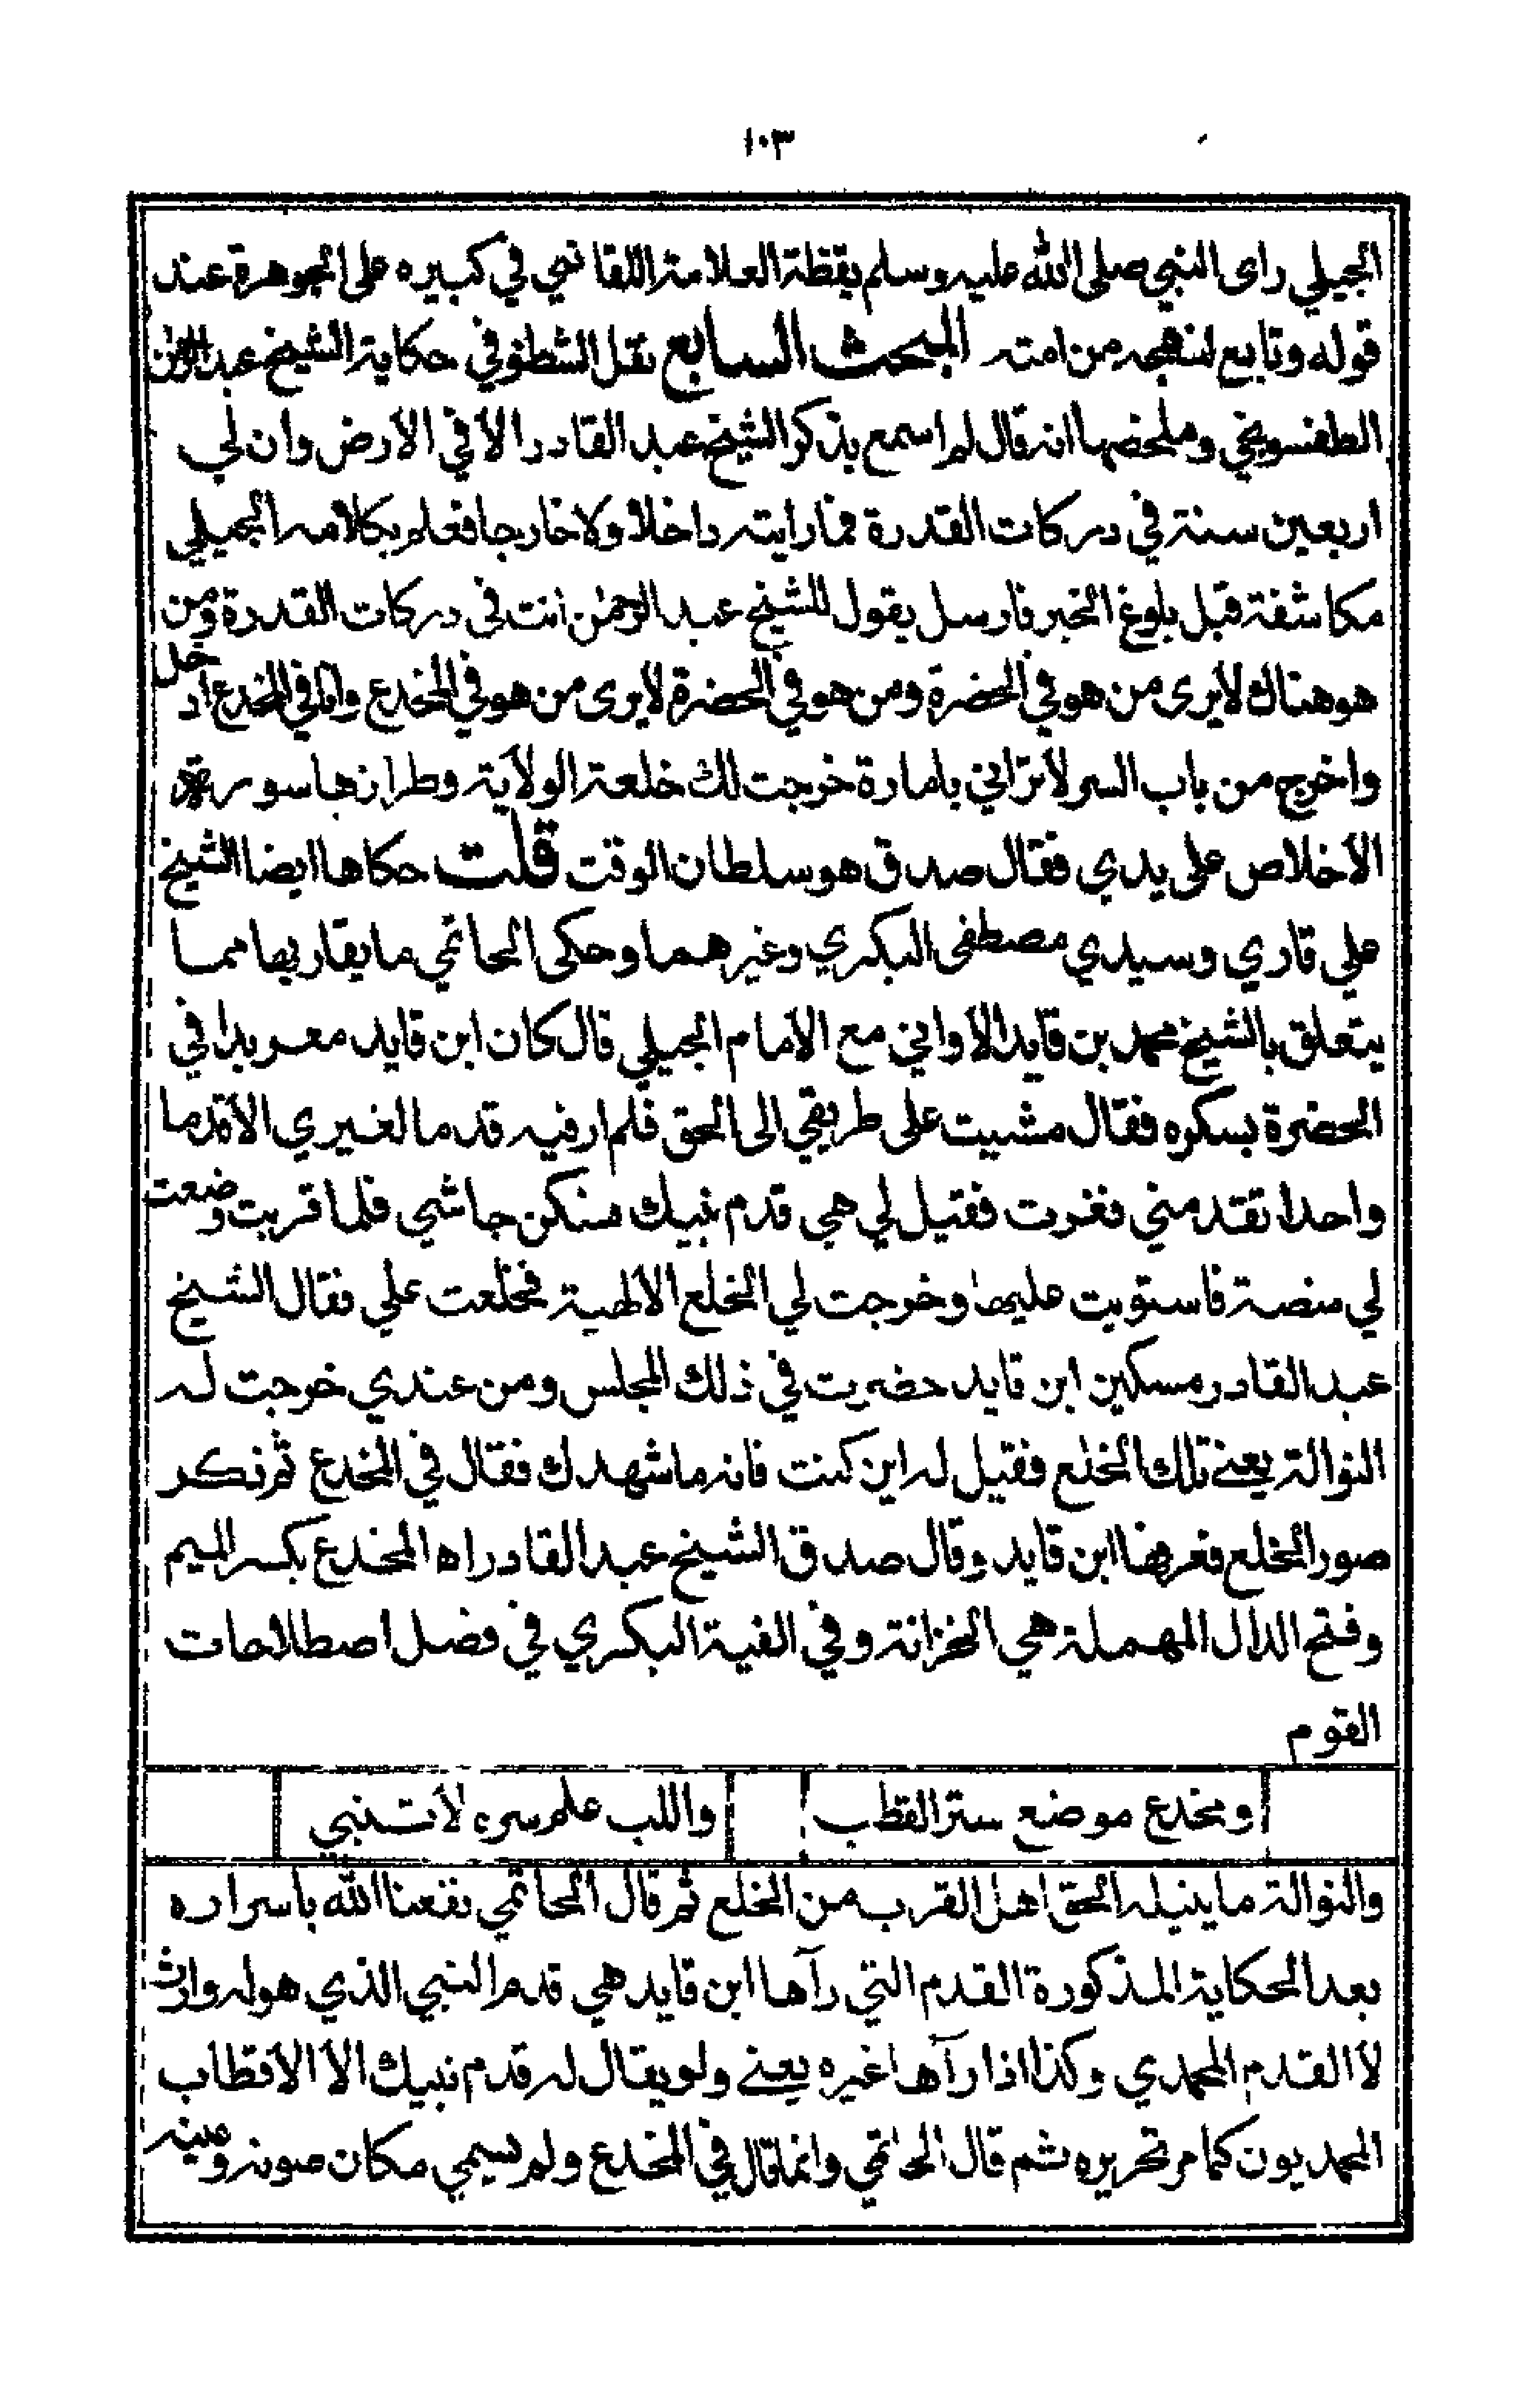 ١٠٣
الجيلي راى النبي صلى الله عليه وسلم يقظة العلامة اللقاني في كبيره على الجوهرة عند
قوله وتابع لنهجه من امته المبحث السابع نقل الشطنوفي حكاية الشيخ عبد الرحمن
الطفسونجي وملخصها انه قال لم اسمع بذكر الشيخ عبد القادر الا في الارض وان لي
اربعين سنة في دركات القدرة فما رايته داخلا ولا خارجا فعلم بكلامه الجيلي
مكاشفة قبل بلوغ الخبر فارسل يقول للشيخ عبد الرحمن انت في دركات القدرة ومن
هو هناك لا يرى من هو في الحضرة ومن هو في الحضرة لا يرى من هو في المخدع وانا في المخدع ادخل
واخرج من باب السر لا تراني بامارة خرجت لك خلعة الولاية وطرازها سورة
الاخلاص على يدي فقال صدق هو سلطان الوقت قلت حكاها ايضا الشيخ
علي قاري وسيدي مصطفى البكري وغيرهما وحكى الحاتمي ما يقاربها مما
يتعلق بالشيخ محمد بن قايد الاواني مع الامام الجيلي قال كان ابن قايد معربدا في
الحضرة بسكره فقال مشيت على طريقي الى الحق فلم ار فيه قدما لغيري الا قدما
واحدا تقدمني فغرت فقيل لي هي قدم نبيك فسكن جاشي فلما قربت وضعت
لي منصة فاستويت عليها وخرجت لي الخلع الالهية فخلعت علي فقال الشيخ
عبد القادر مسكين ابن قايد حضرت في ذلك المجلس ومن عندي خرجت له
النوالة يعني تلك الخلع فقيل له اين كنت فانه ما شهدك فقال في المخدع ثم ذكر
صور الخلع فعرفها ابن قايد وقال صدق الشيخ عبد القادر اه المخدع بكسر الميم
وفتح الدال المهملة هي الخزانة وفي الفية البكري في فضل اصطلاحات
القوم
ومخدع موضع ستر القطب واللب علم سره لانت نبي
والنوالة ما ينيله الحق اهل القرب من الخلع ثم قال الحاتمي نفعنا الله باسراره
بعد الحكاية المذكورة القدم التي رآها ابن قايد هي قدم النبي الذي هو له وارث
لا القدم المحمدي وكذا اذا رآها غيره يعني ولو يقال له قدم نبيك الا الاقطاب
المحمديون كما مر تحريره ثم قال الحاتمي وانما قال في المخدع ولم يسمي مكان صونه وعينه